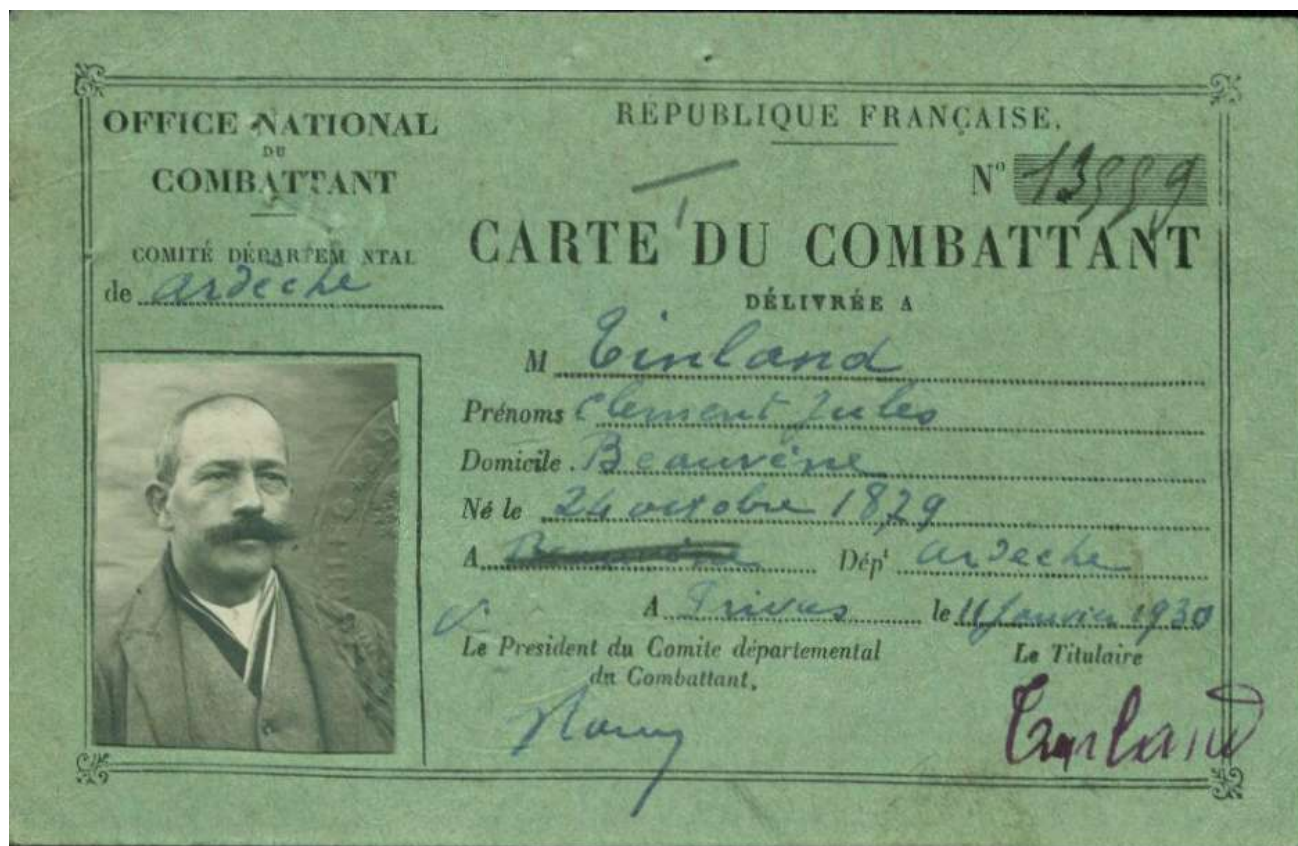 OFFICE NATIONAL
DU
COMBATTANT
COMITÉ DÉPARTEM NTAL
de ardèche
RÉPUBLIQUE FRANÇAISE.
N° 13559
CARTE DU COMBATTANT
DÉLIVRÉE A
M Tinland
Prénoms Clément Jules
Domicile Beauvène
Né le 24 octobre 1879
A Dép<sup>t</sup> ardeche
A Privas le 11 janvier 1930
Le President du Comite départemental
du Combattant,
Le Titulaire
Tinland